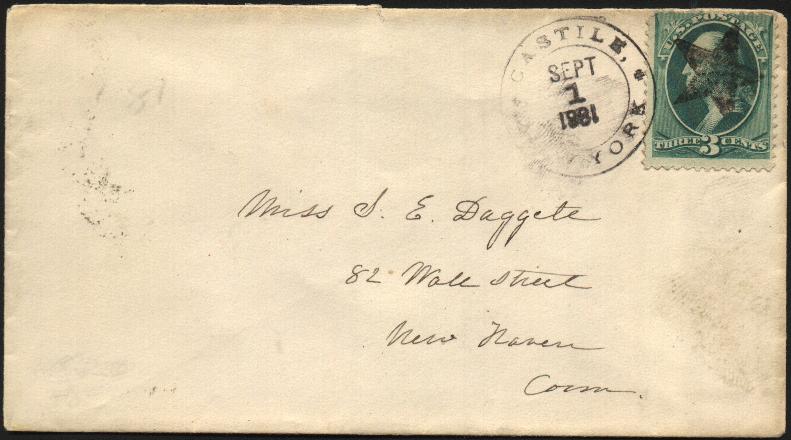 CASTILE,
SEPT
1
1881
YORK
U.S. POSTAGE
THREE 3 CENTS
Miss S. E. Daggett
82 Wall Street
New Haven
Conn.